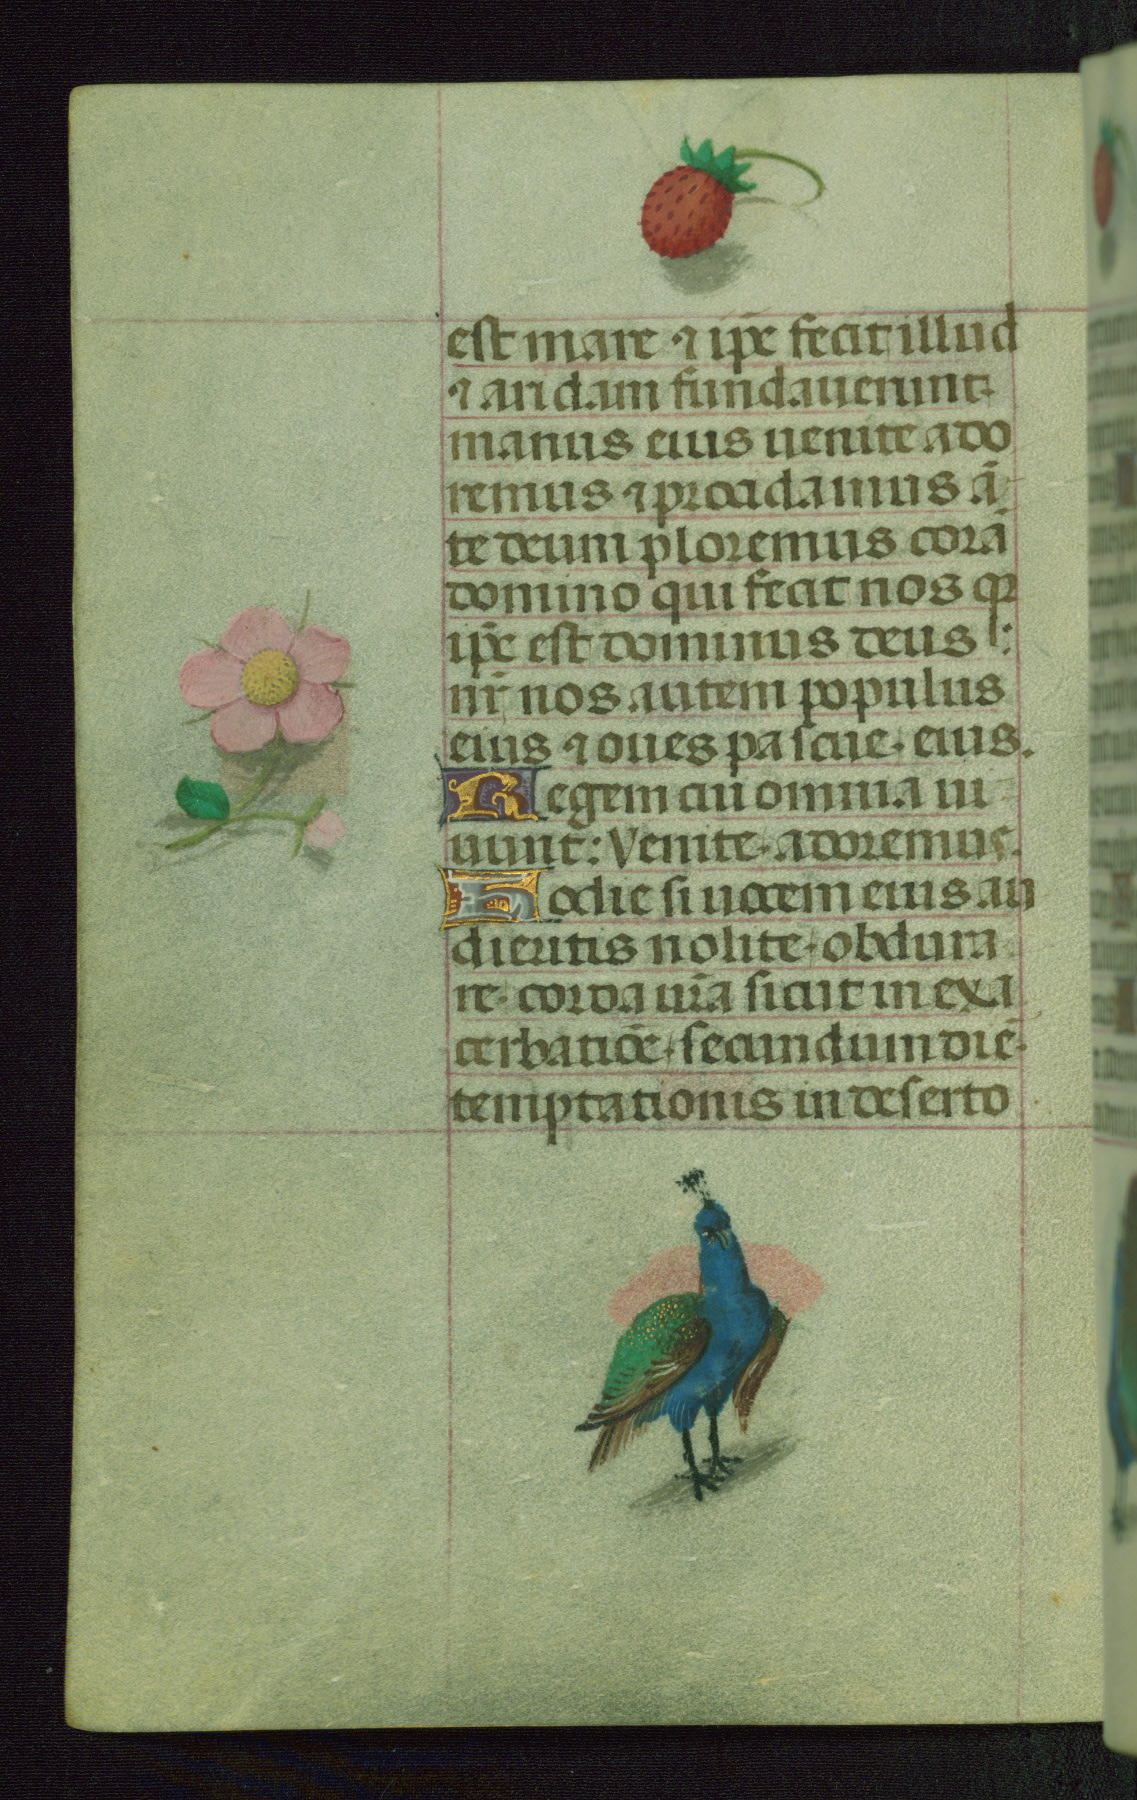 est mare ⁊ ip̄e fecit illud
⁊ aridam fundauerunt
manus eius uenite ado
remus ⁊ procidamus ā
te deum ploremus corā
domino qui fecit nos qr
ip̄e est dominus deus
nr̄ nos autem populus
eius ⁊ oues pascue eius.
Regem cui omnia ui
uunt: Venite adoremus.
Hodie si uocem eius au
dieritis nolite obdura
re corda ur̄a sicut in exa
cerbatiōe secundum diē
temptationis in deserto